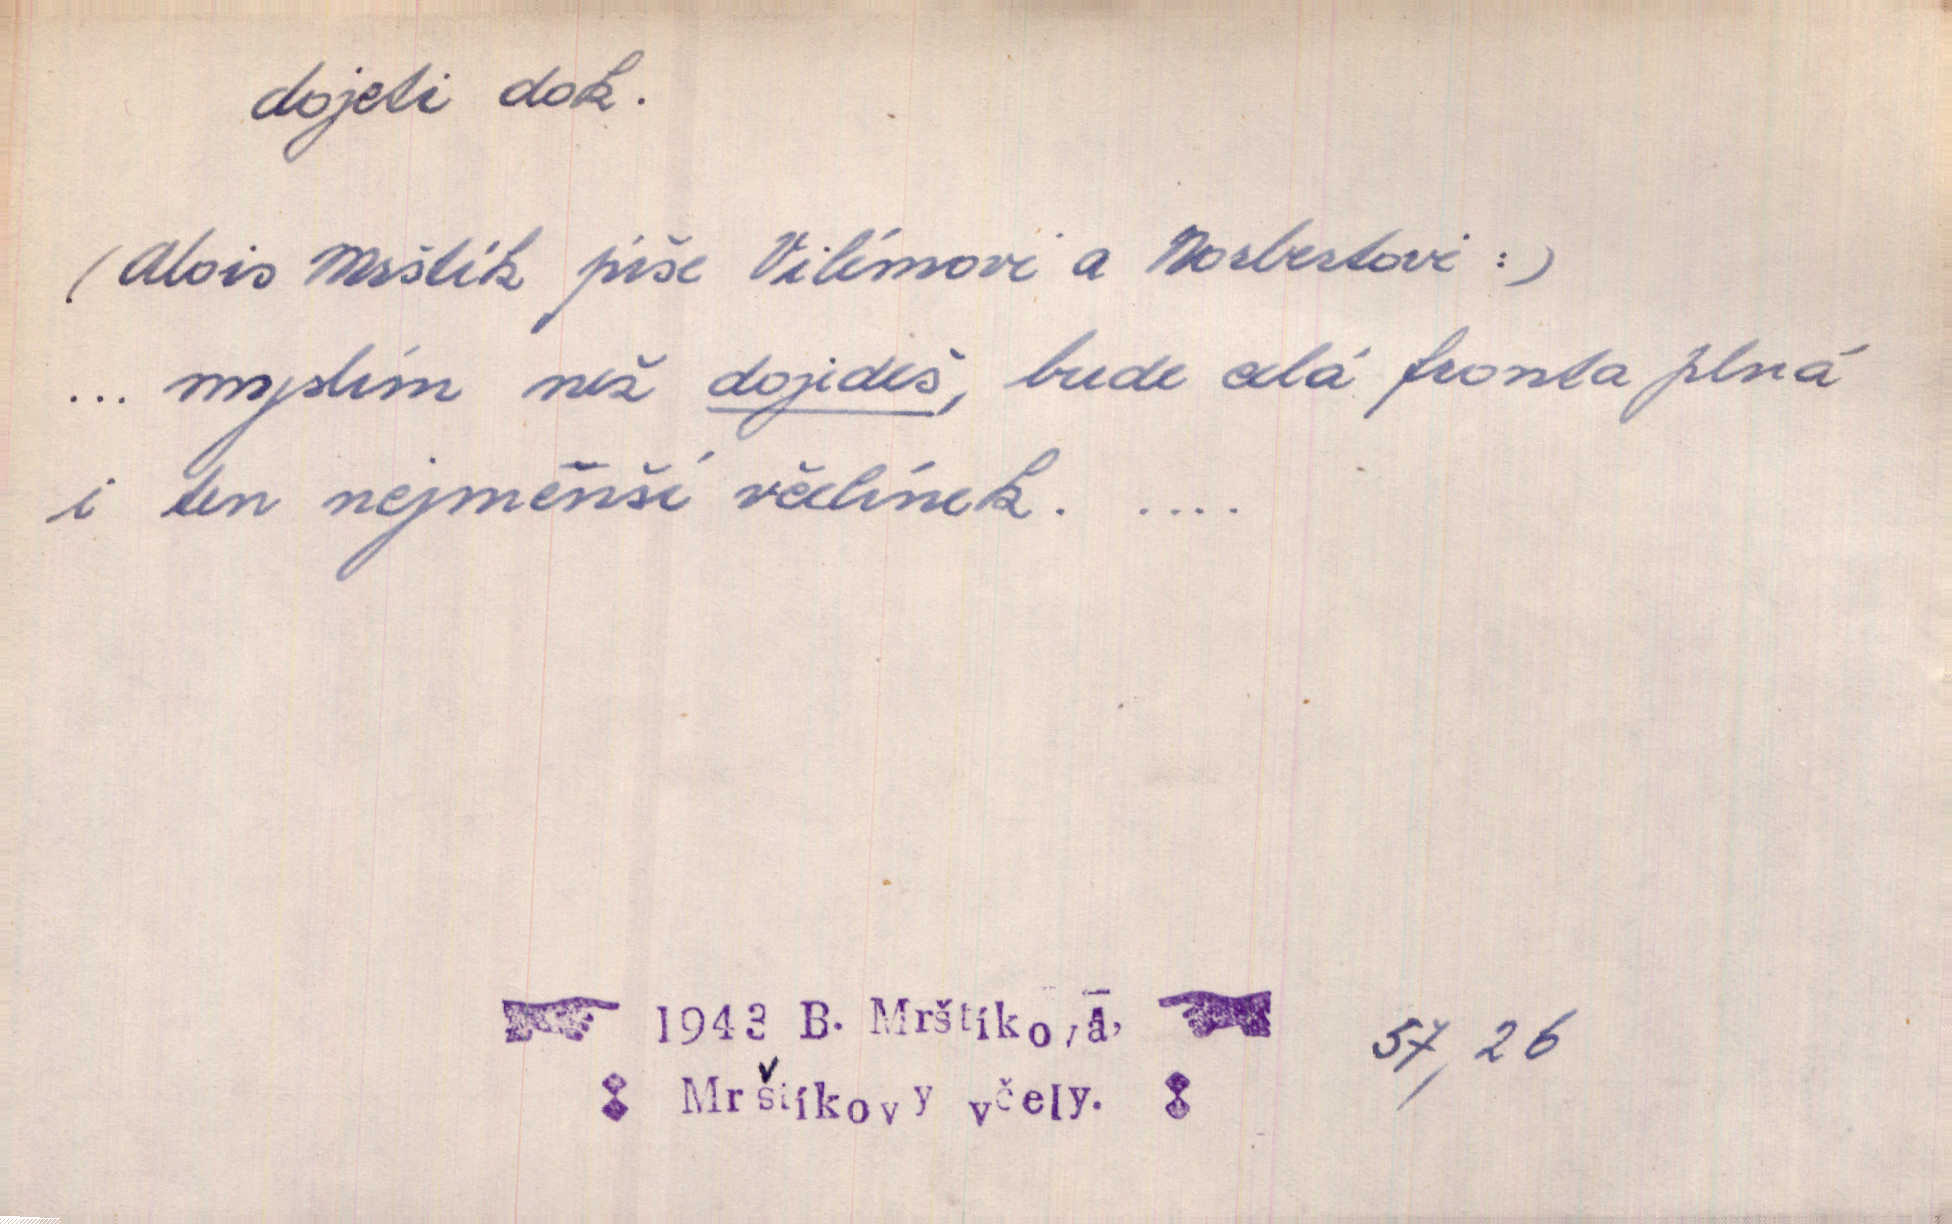 dojeti dok.
(Alois Mrštík píše Vilímovi a Norbertovi:)
... myslím než dojedeš, bude celá fronta plná
i ten nejměnší včelínek. ....
1943 B. Mrštíková,
Mrštíkovy včely.
57, 26